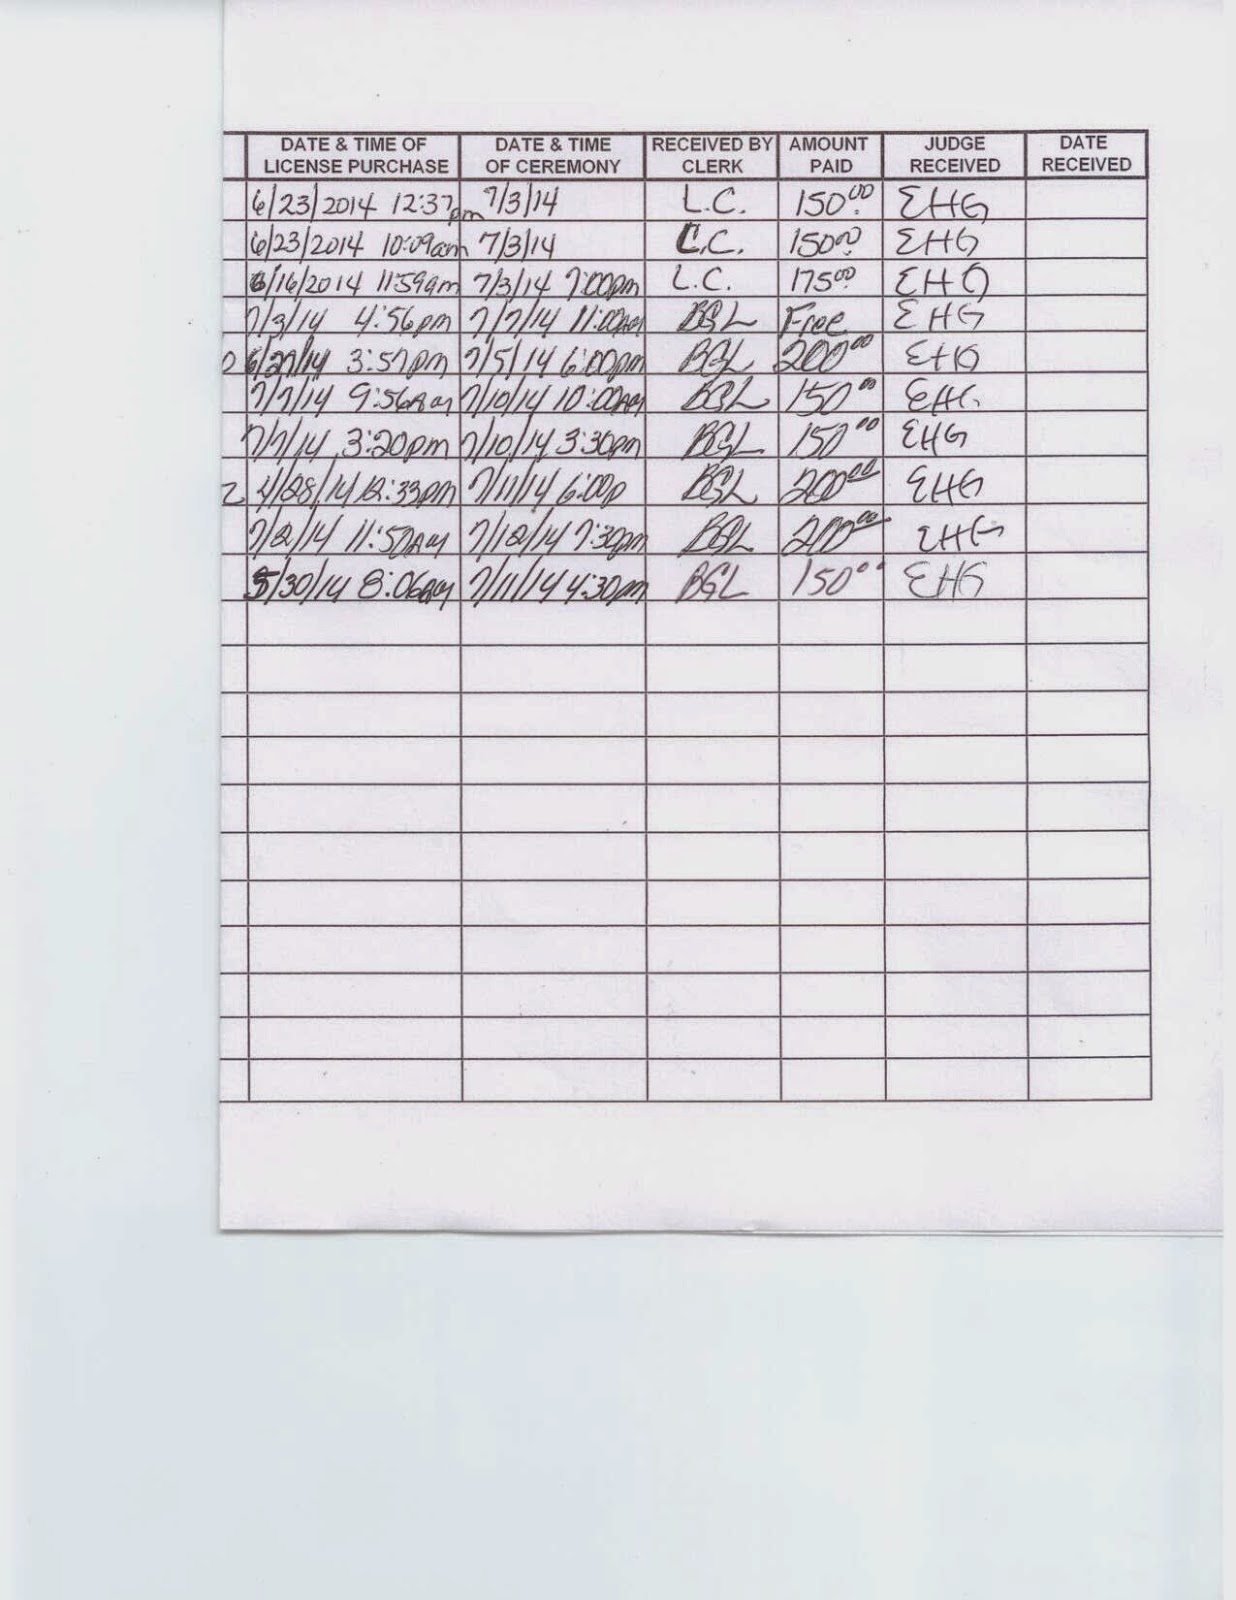 DATE & TIME OF LICENSE PURCHASE DATE & TIME OF CEREMONY RECEIVED BY CLERK AMOUNT PAID JUDGE RECEIVED DATE RECEIVED
6/23/2014 12:37pm 7/3/14 L.C. 150.00 EHG
6/23/2014 10:09am 7/3/14 L.C. 150.00 EHG
6/16/2014 11:59am 7/3/14 7:00pm L.C. 175.00 EHG
7/3/14 4:56pm 7/7/14 11:00am BGL Free EHG
6/27/14 3:57pm 7/5/14 6:00pm BGL 200.00 EHG
7/7/14 9:56am 7/10/14 10:00am BGL 150.00 EHG
7/7/14 3:20pm 7/10/14 3:30pm BGL 150.00 EHG
2 4/28/14 12:33pm 7/11/14 6:00p BGL 200.00 EHG
7/2/14 11:57am 7/12/14 7:30pm BGL 200.00 EHG
5/30/14 8:06am 7/11/14 4:30pm BGL 150.00 EHG